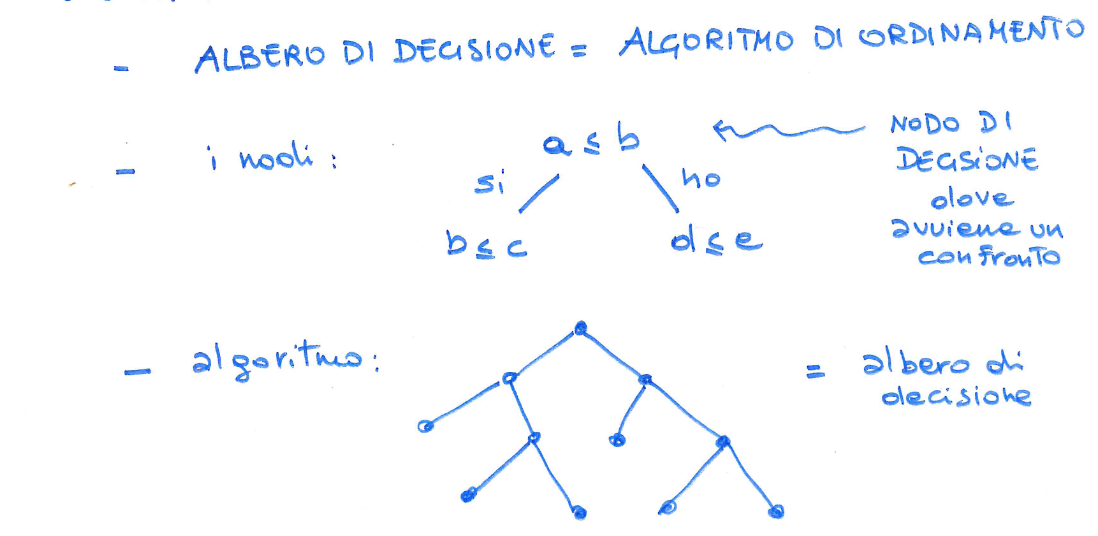 - ALBERO DI DECISIONE = ALGORITMO DI ORDINAMENTO
- i nodi :
a ≤ b
NODO DI
DECISIONE
dove
avviene un
confronto
si
no
b ≤ c
d ≤ e
- algoritmo:
= albero di
decisione